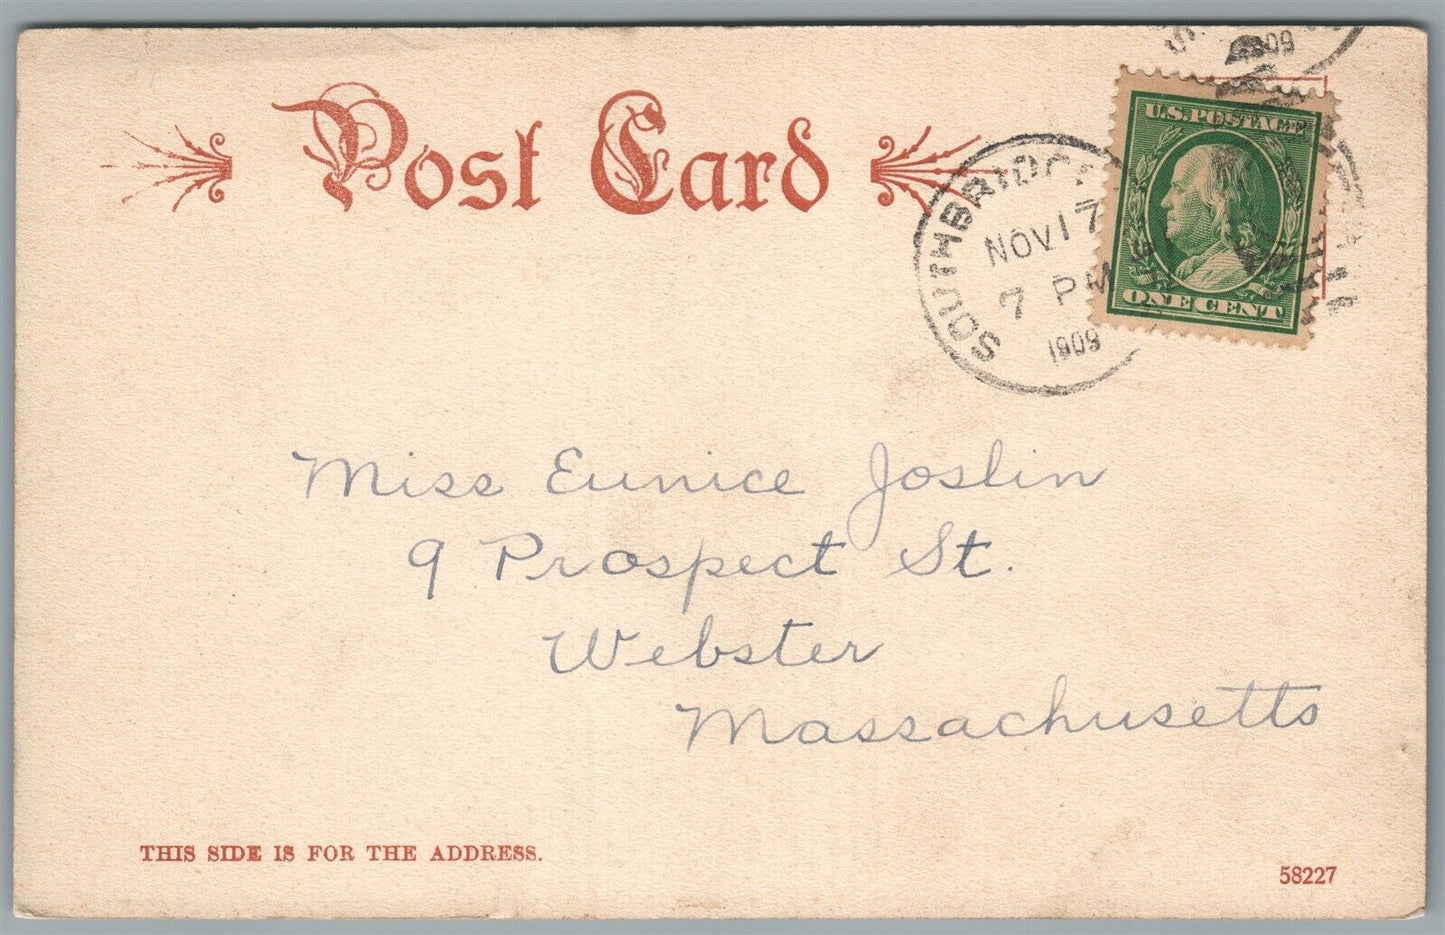 Post Card
SOUTHBRIDGE
NOV 17
7 PM
1909
1909
U.S. POSTAGE
ONE CENT
Miss Eunice Joslin
9 Prospect St.
Webster
Massachusetts
THIS SIDE IS FOR THE ADDRESS.
58227